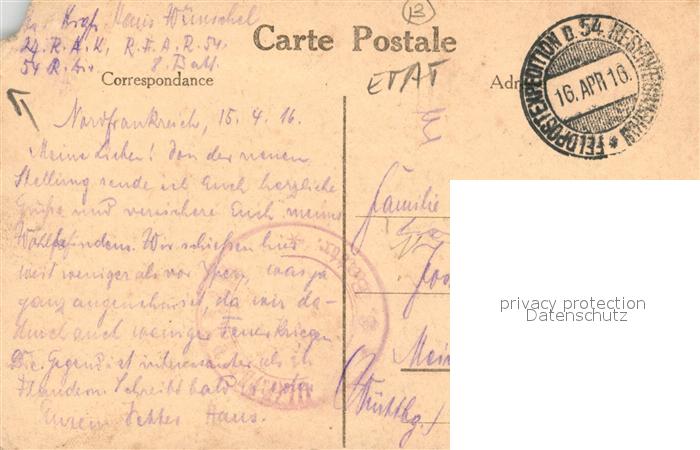 Krgf. Hans Wünschel
27. R.A.K., R.F.A.R. 54.
54 R. Div. 8. Batt.
Carte Postale
B
ETAT
Correspondance
Adr
FELDPOSTEXPEDITION D. 54. RESERVEDIVISION *
16. APR 16.
Nordfrankreich, 15. 4. 16.
Meine Lieben! Von der neuen
Stellung sende ich Euch herzliche
Grüße und versichere Euch meines
Wohlbefindens. Wir schießen hier
weit weniger als vor Ypern, was ja
ganz angenehm ist, da wir da-
durch auch weniger Feuer kriegen.
Die Gegend ist interessanter als in
Flandern. Schreibt bald wieder
Eurem Hans.
Familie
Mein
(Württbg.)
privacy protection
Datenschutz